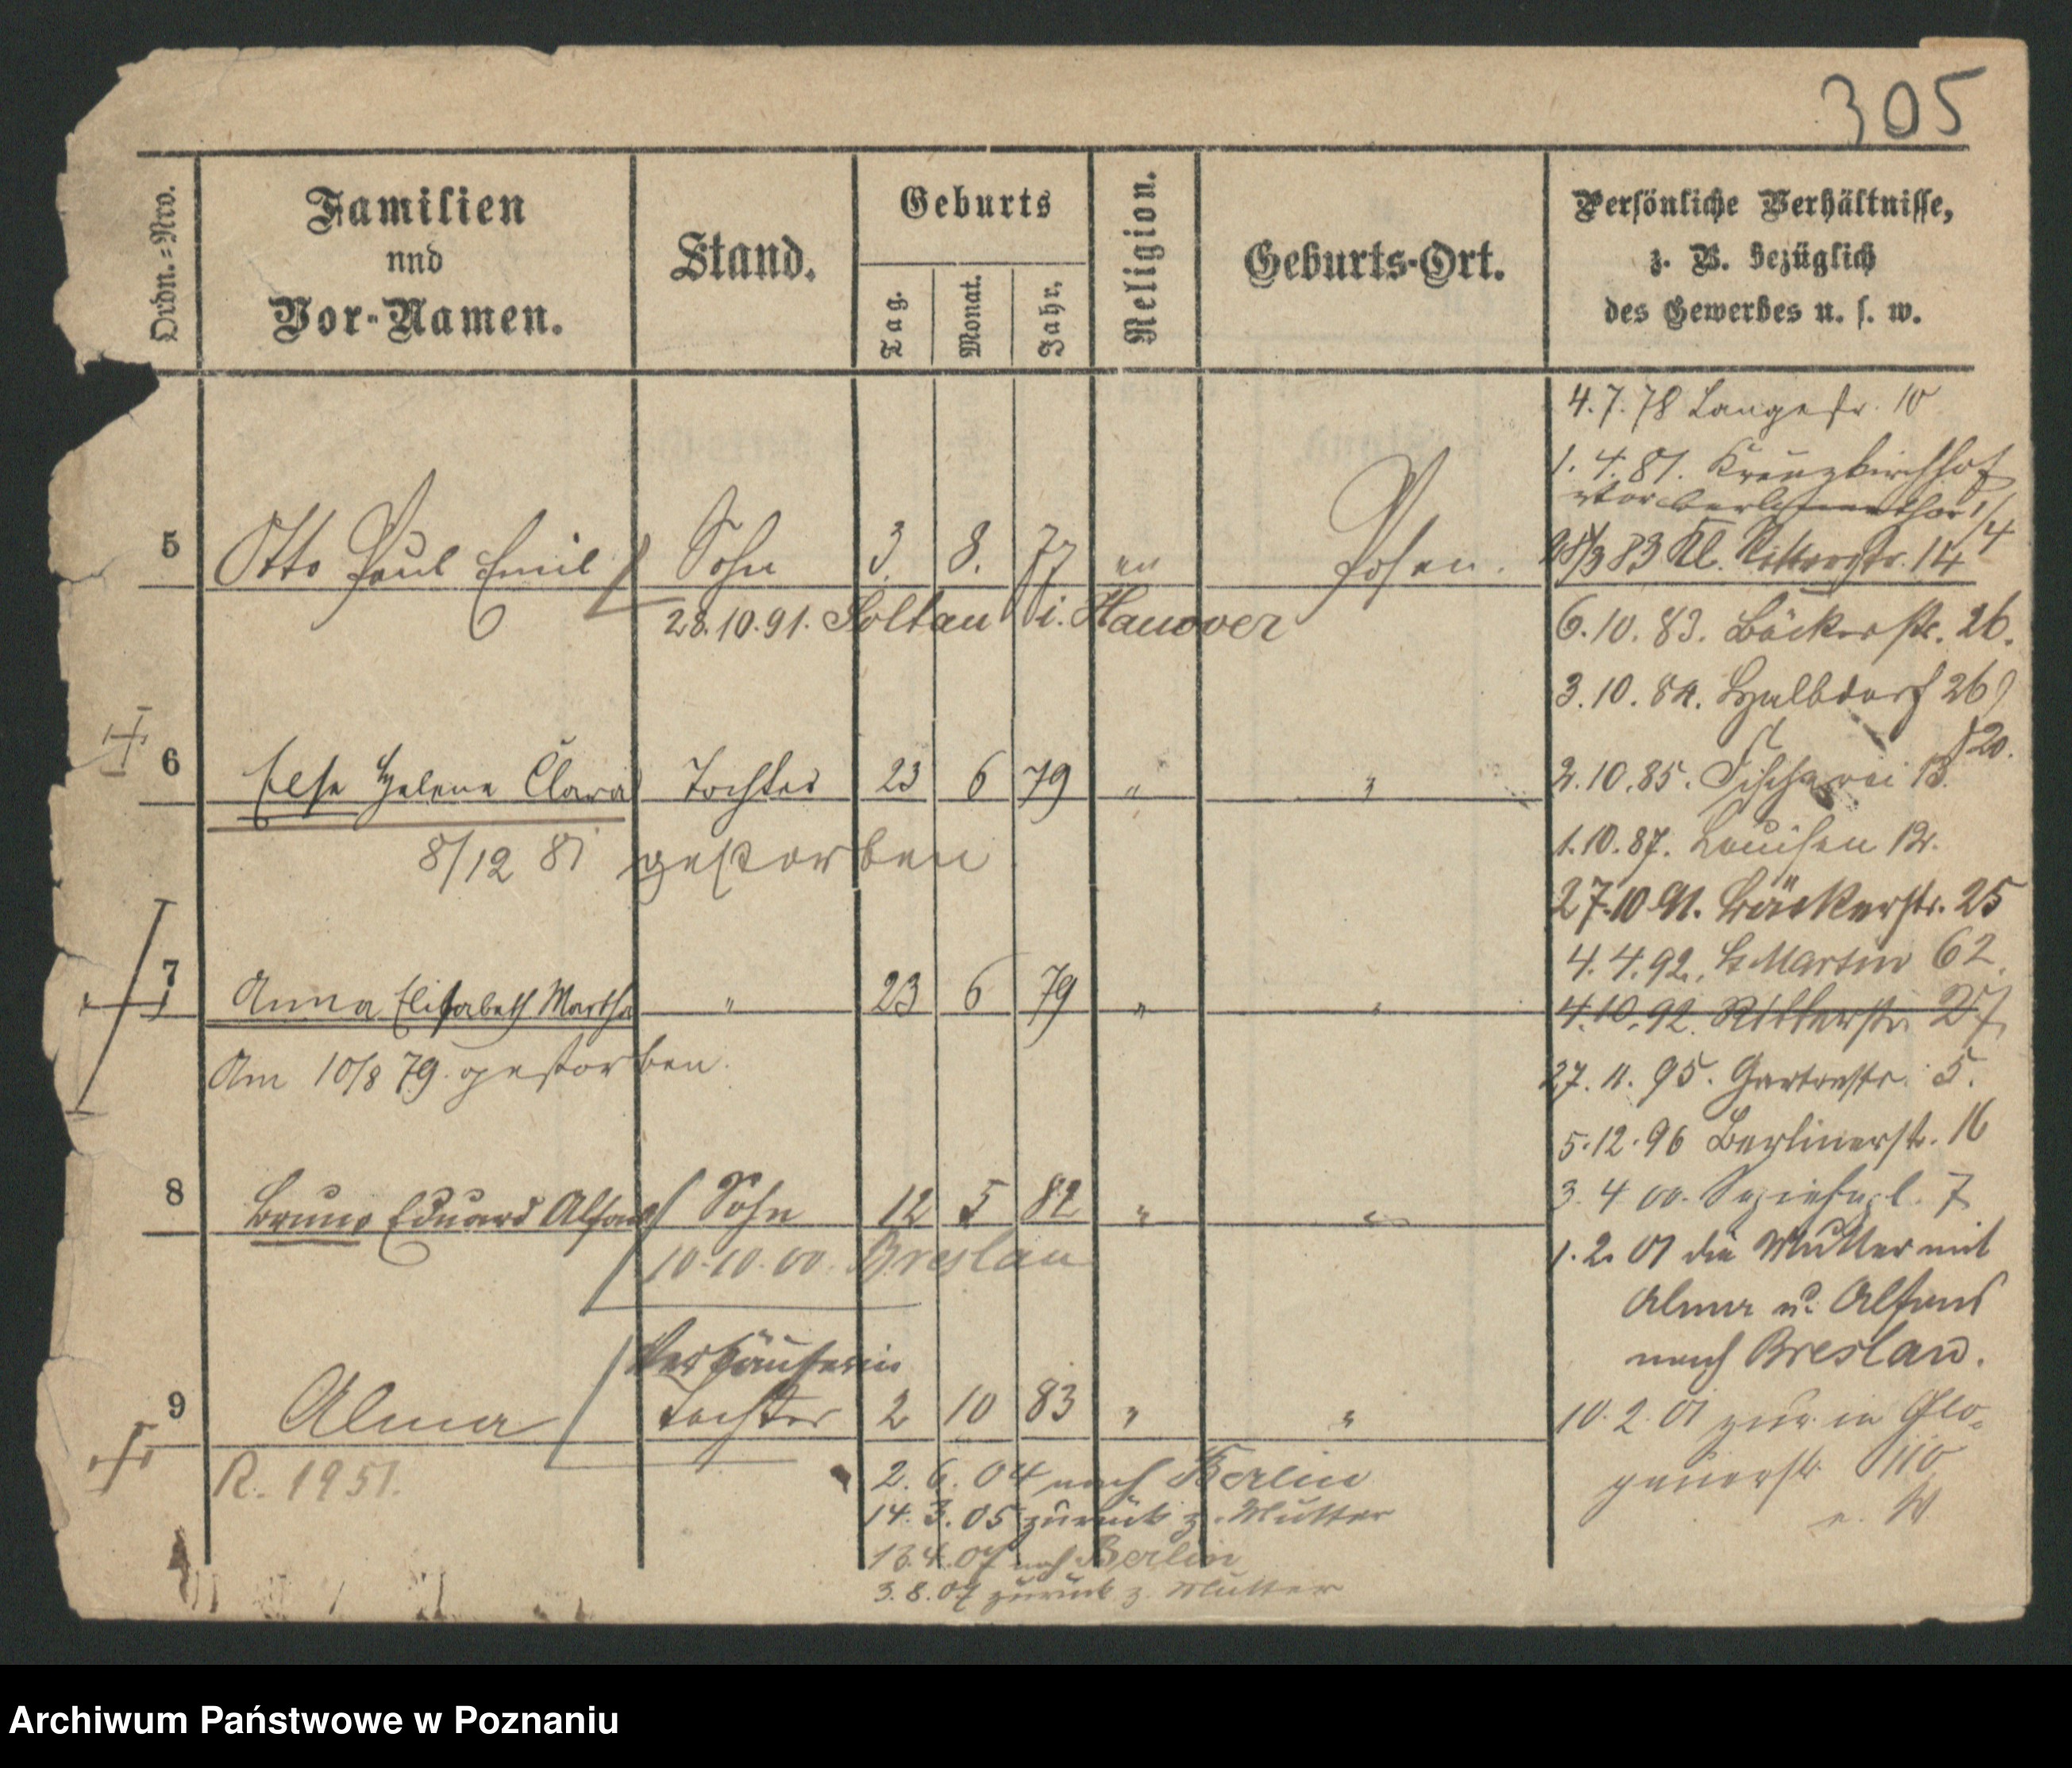 305
Ordn.=Nro.
Familien
und
Vor-Namen.
Stand.
Geburts
Tag.
Monat.
Jahr.
Religion.
Geburts-Ort.
Persönliche Verhältnisse,
z. B. bezüglich
des Gewerbes u. s. w.
5 Otto Paul Emil Sohn 3. 8. 77 Posen.
28.10.91. Soltau i. Hanover
6 Else Helene Clara Tochter 23 6 79 " "
8/12 81 gestorben
7 Anna Elisabeth Martha " 23 6 79 " "
Am 10/8 79 gestorben.
8 Bruno Eduard Alfons Sohn 12 5 82 " "
10.10.00. Breslau
Verkäuferin
9 Alma Tochter 2 10 83 " "
R. 1951.
2. 6. 04 nach Berlin
14. 3. 05 zurück z. Mutter
13.4.07 nach Berlin
3.8.07 zurück z. Mutter
4.7.78 Langestr. 10
1.4.81. Kreuzkirchhof
1/4
28/3 83 Kl. Ritterstr. 14
6.10.83. Bäckerstr. 26.
3.10.84. Halbdorf 26
20.
2.10.85. Fischerei 13.
1.10.87. Louisen 12.
27.10.91. Bäckerstr. 25
4.4.92. St Martin 62.
4.10.92. Ritterstr. 27
27. 11. 95. Gartenstr. 5.
5.12.96 Berlinerstr. 16
3. 4 00. 7
1.2.01 die Mutter mit
Alma u. Alfons
nach Breslau.
10.2.01 zur. in Glo-
gauerstr. 110